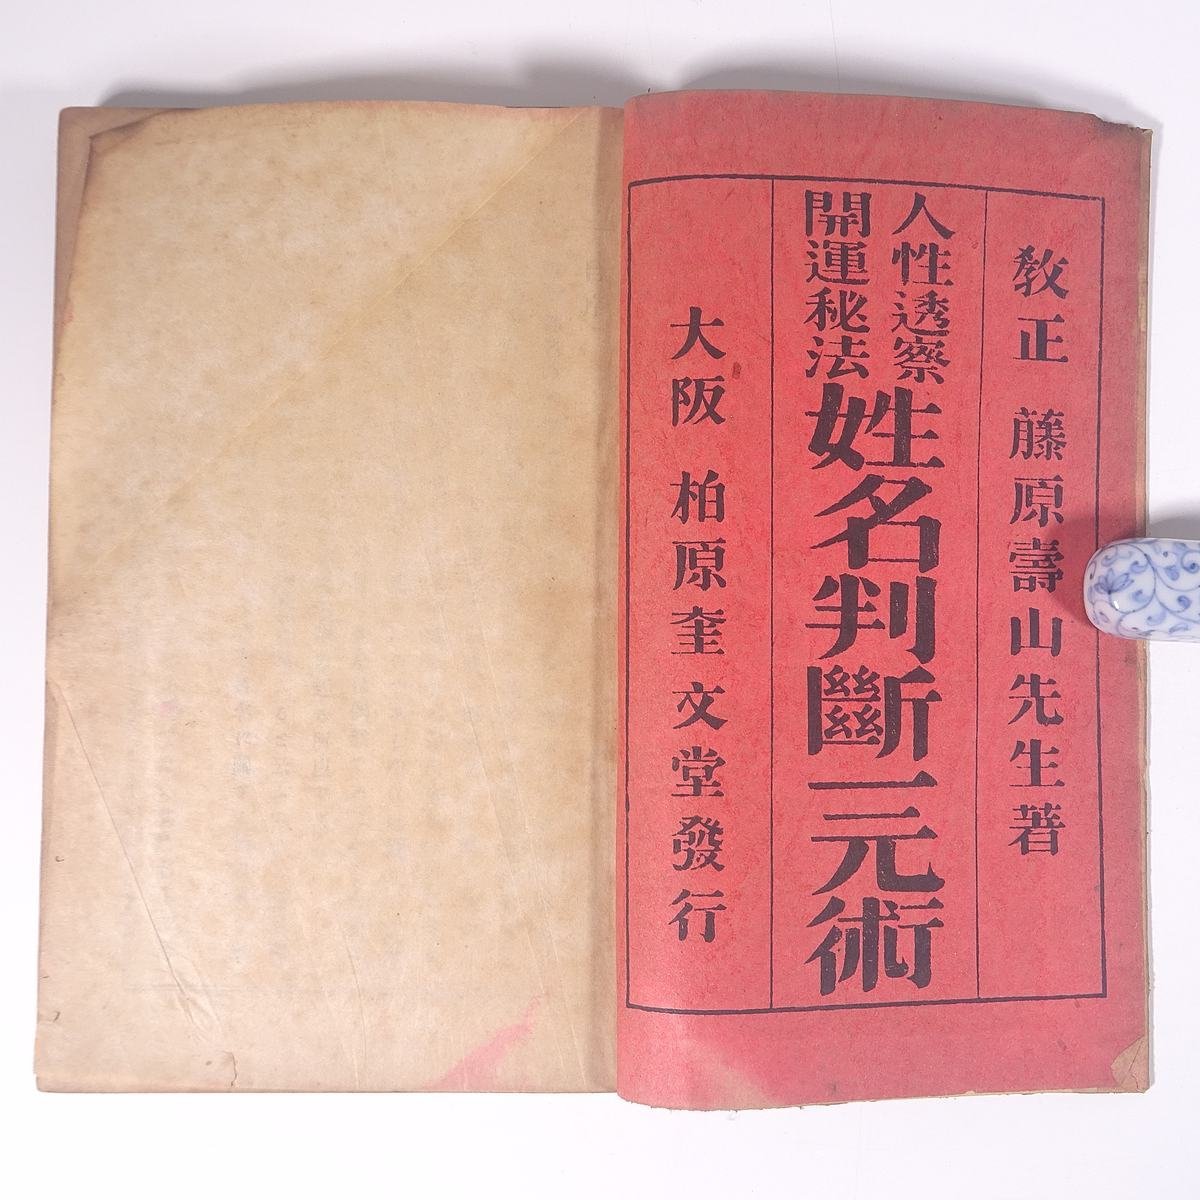 教正 藤原壽山先生著
人性透察
開運秘法
姓名判斷一元術
大阪 柏原奎文堂發行